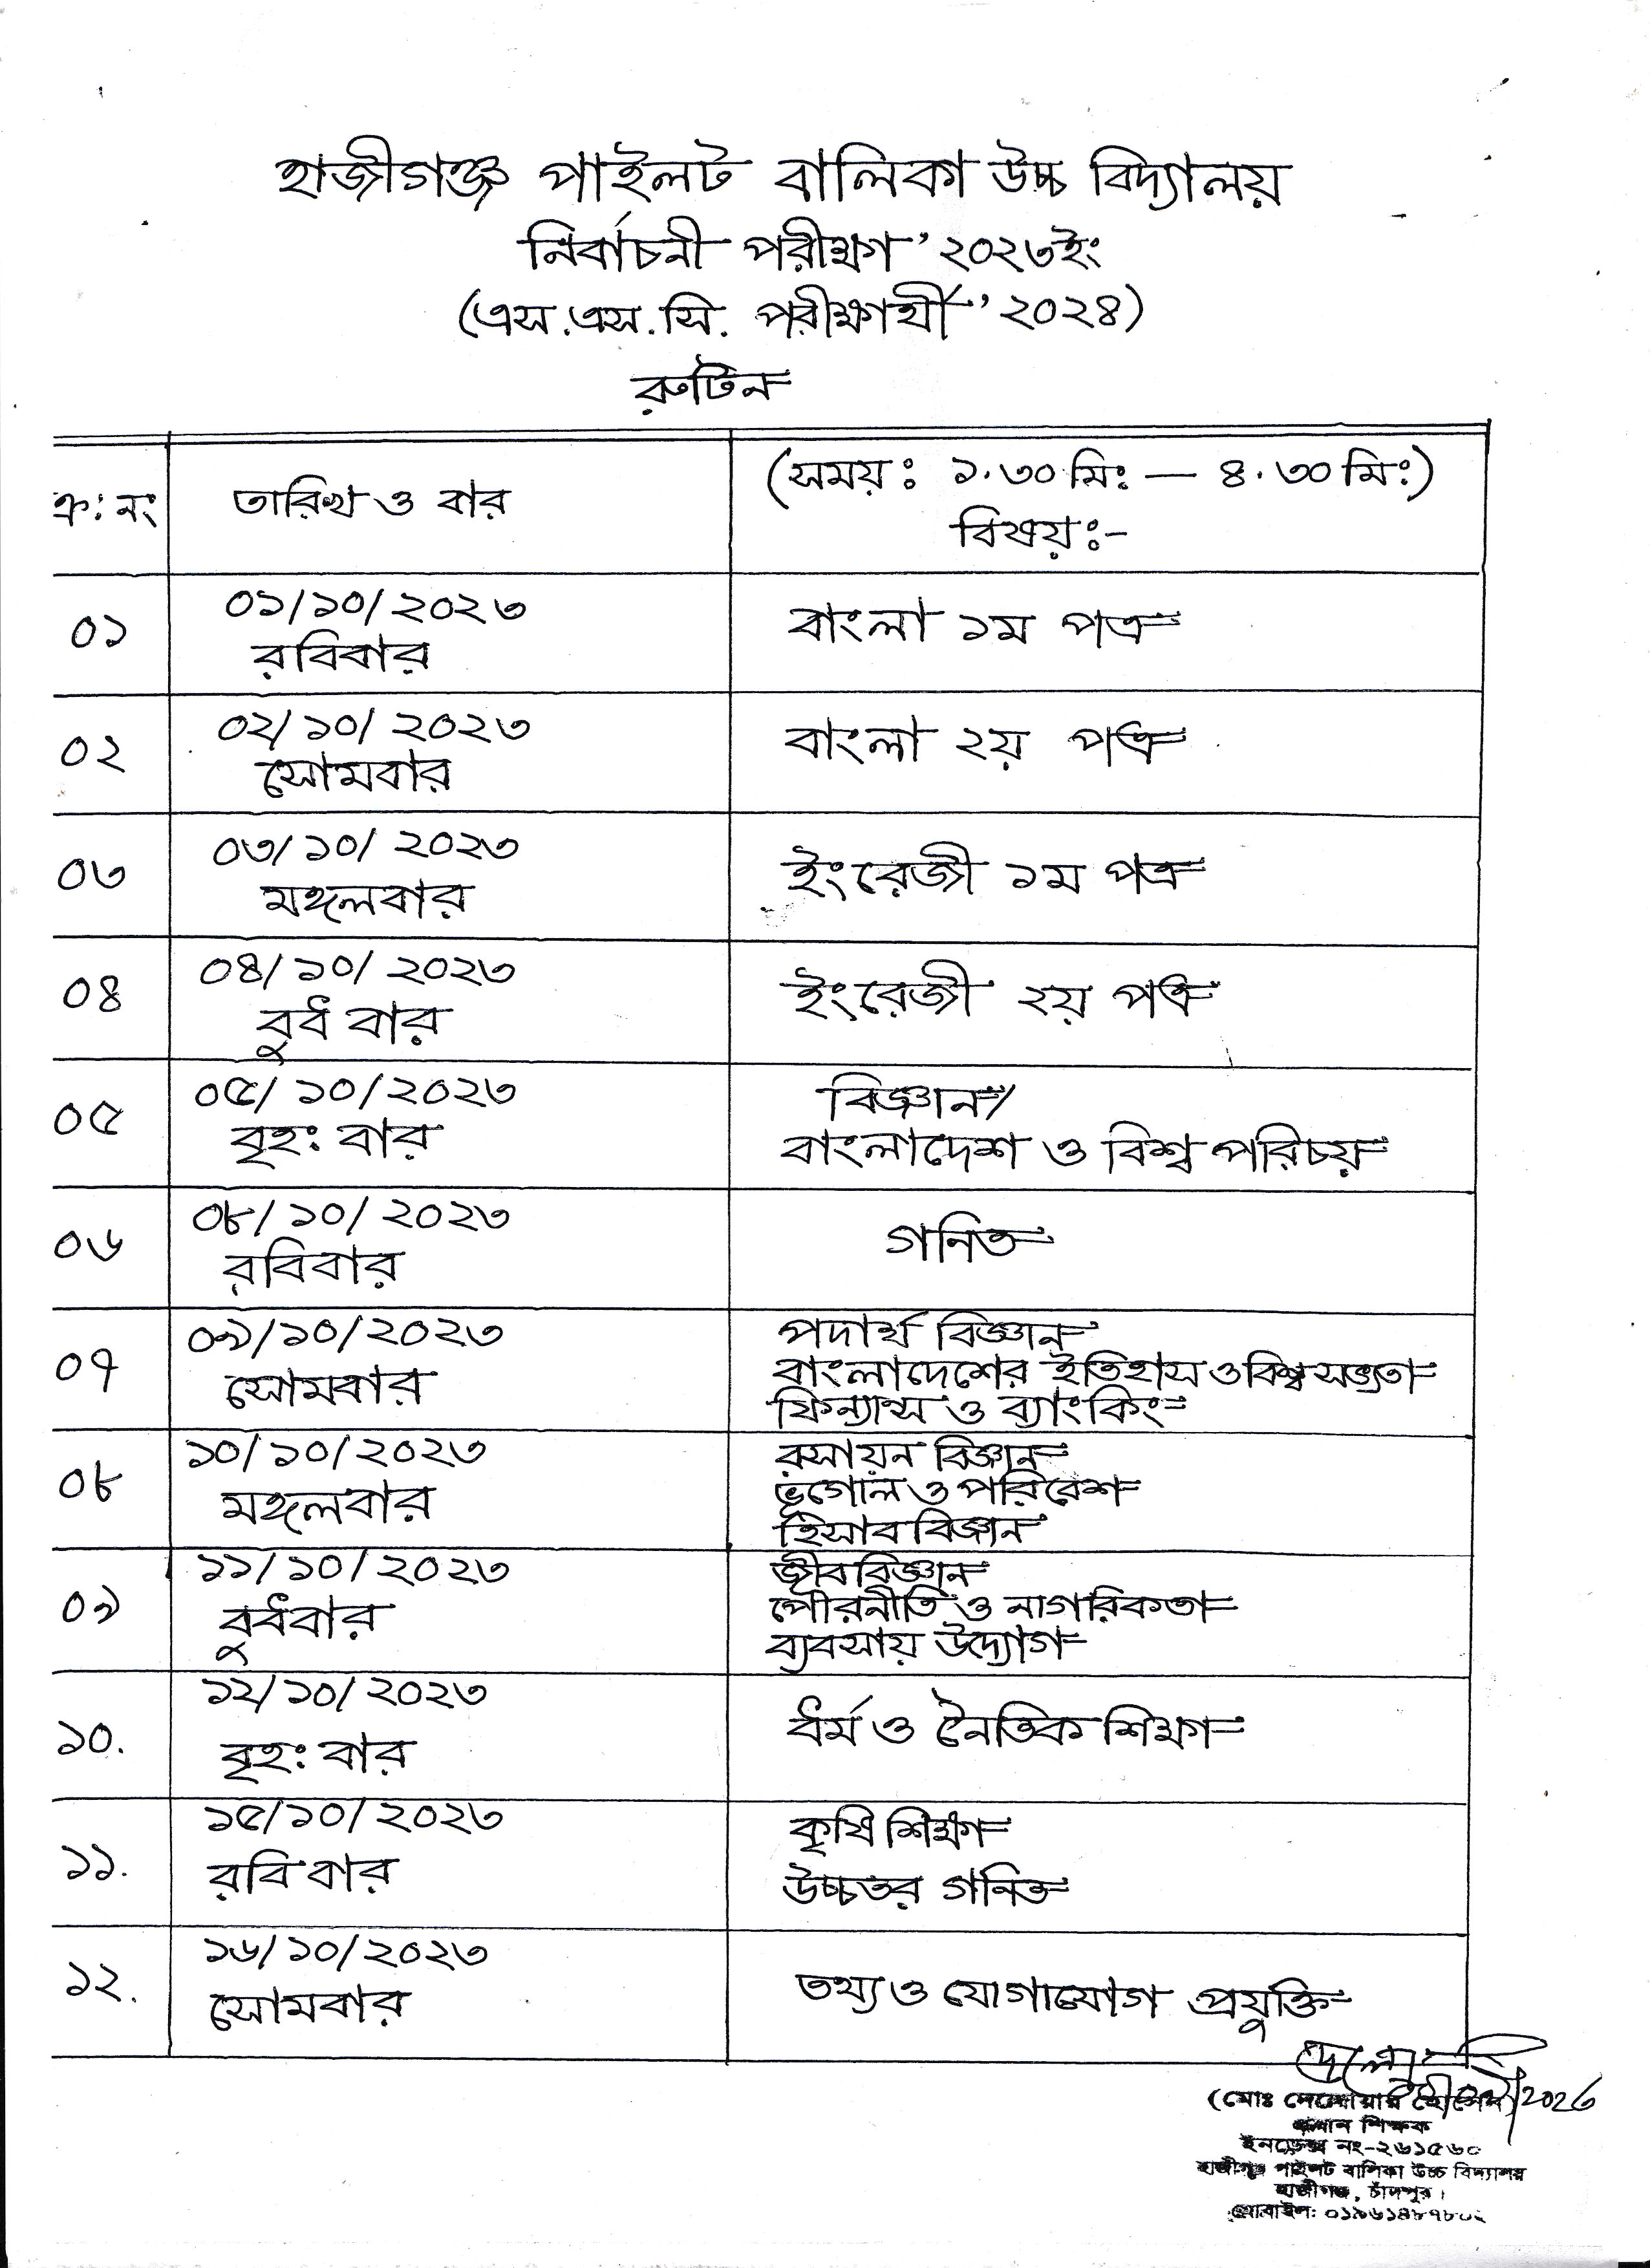 হাজীগঞ্জ পাইলট বালিকা উচ্চ বিদ্যালয়
নির্বাচনী পরীক্ষা'২০২৩ইং
(এস.এস.সি. পরীক্ষার্থী'২০২৪)
রুটিন
ক্র: নং তারিখ ও বার (সময়ঃ ১.৩০মিঃ — ৪.৩০মিঃ)
বিষয়ঃ-
০১ ০১/১০/২০২৩ রবিবার বাংলা ১ম পত্র
০২ ০২/১০/২০২৩ সোমবার বাংলা ২য় পত্র
০৩ ০৩/১০/২০২৩ মঙ্গলবার ইংরেজী ১ম পত্র
০৪ ০৪/১০/২০২৩ বুধ বার ইংরেজী ২য় পত্র
০৫ ০৫/১০/২০২৩ বৃহ: বার বিজ্ঞান/
বাংলাদেশ ও বিশ্ব পরিচয়
০৬ ০৮/১০/২০২৩ রবিবার গনিত
০৭ ০৯/১০/২০২৩ সোমবার পদার্থ বিজ্ঞান
বাংলাদেশের ইতিহাস ও বিশ্ব সভ্যতা
ফিন্যান্স ও ব্যাংকিং
০৮ ১০/১০/২০২৩ মঙ্গলবার রসায়ন বিজ্ঞান
ভূগোল ও পরিবেশ
হিসাব বিজ্ঞান
০৯ ১১/১০/২০২৩ বুধবার জীব বিজ্ঞান
পৌরনীতি ও নাগরিকতা
ব্যবসায় উদ্যোগ
১০. ১২/১০/২০২৩ বৃহ: বার ধর্ম ও নৈতিক শিক্ষা
১১. ১৫/১০/২০২৩ রবি বার কৃষি শিক্ষা
উচ্চতর গনিত
১২. ১৬/১০/২০২৩ সোমবার তথ্য ও যোগাযোগ প্রযুক্তি
(মোঃ দেলোয়ার হোসেন)
প্রধান শিক্ষক
ইনডেক্স নং-২৬১৫৬০
হাজীগঞ্জ পাইলট বালিকা উচ্চ বিদ্যালয়
হাজীগঞ্জ, চাঁদপুর।
মোবাইল: